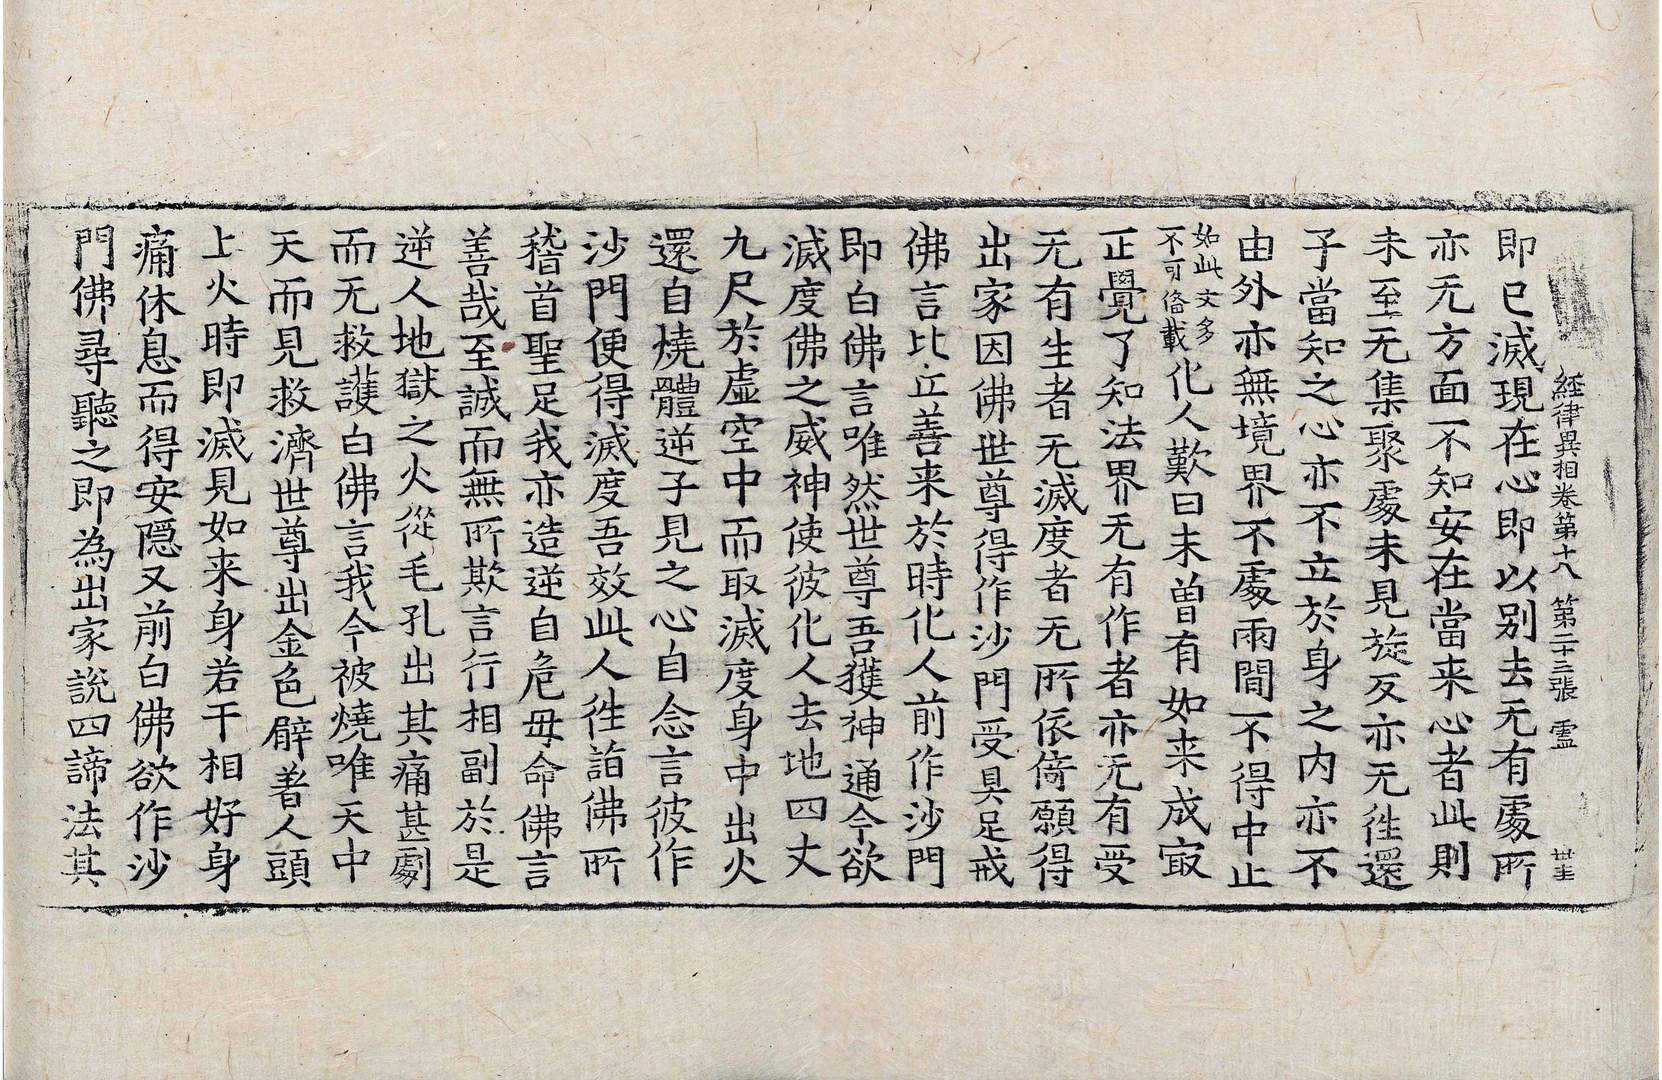 經律異相卷第十八 第二十三張 靈
即已滅現在心即以別去无有處所
亦无方面不知安在當来心者此則
未至无集聚處未見旋反亦无徃還
子當知之心亦不立於身之內亦不
由外亦無境界不處兩間不得中止
如此文多
不可俻載
化人歎曰未曽有如来成㝡
正覺了知法界无有作者亦无有受
无有生者无滅度者无所依倚願得
出家因佛世尊得作沙門受具足戒
佛言比丘善来於時化人前作沙門
即白佛言唯然世尊吾獲神通今欲
滅度佛之威神使彼化人去地四丈
九尺於虛空中而取滅度身中出火
還自燒體逆子見之心自念言彼作
沙門便得滅度吾效此人徃詣佛所
稽首聖足我亦造逆自危毋命佛言
善哉至誠而無所欺言行相副於是
逆人地獄之火從毛孔出其痛甚劇
而无救護白佛言我今被燒唯天中
天而見救濟世尊出金色臂著人頭
上火時即滅見如来身若干相好身
痛休息而得安隠又前白佛欲作沙
門佛尋聽之即為出家說四諦法其